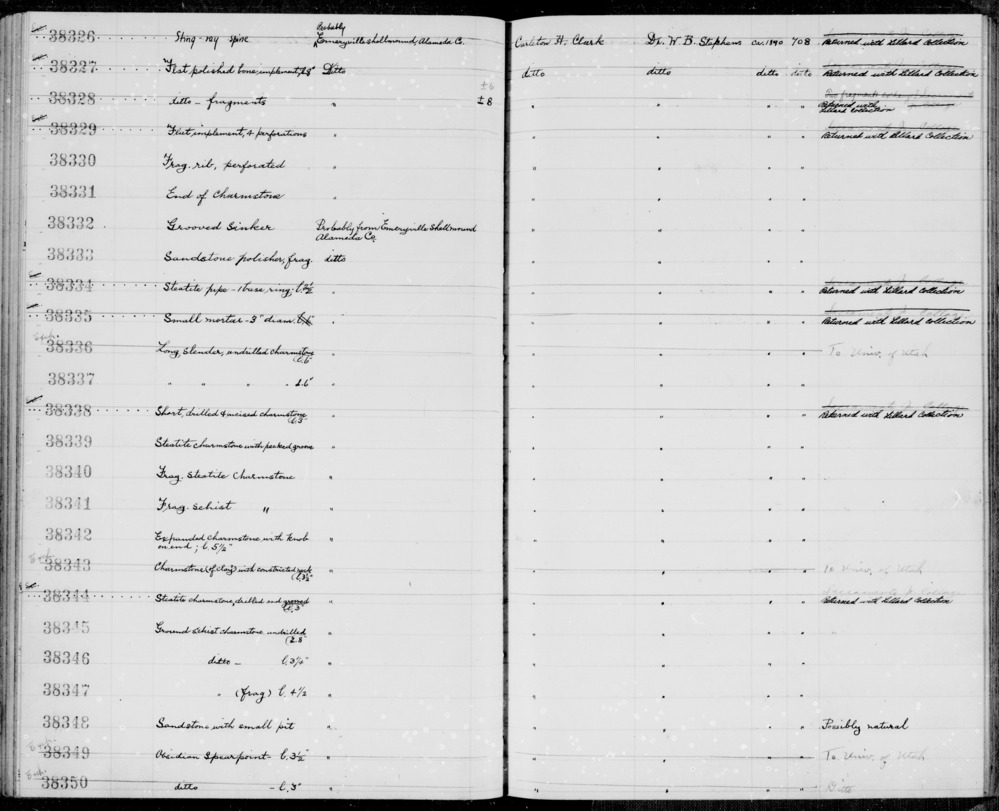 38326 Sting-ray spine Probably Emeryville shellmound, Alameda Co. Carleton H. Clark Dr. W. B. Stephens ca. 1890 708 Returned with Lillard Collection
38327 Flat polished bone implement, Ditto ditto ditto ditto ditto Returned with Lillard Collection
±6
38328 ditto - fragments " ±8 " " " " Returned with Lillard Collection
38329 Flat, implement, 4 perforations " " " " " Returned with Lillard Collection
38330 Frag. rib, perforated " " " " "
38331 End of Charmstone " " " " "
38332 Grooved Sinker Probably from Emeryville Shellmound Alameda Co. " " " "
38333 Sandstone polisher, frag. ditto " " " "
38334 Steatite pipe - 1 base ring, l. 2½ " " " " " Returned with Lillard Collection
38335 Small mortar - 3" diam. " " " " " Returned with Lillard Collection
38336 Long, slender, undrilled charmstone l. 6" " " " " " To Univ. of Utah
38337 " " " - l. 6" " " " " "
38338 Short, drilled & incised charmstone l. 3" " " " " " Returned with Lillard Collection
38339 Steatite charmstone with pecked groove " " " " "
38340 Frag. Steatite Charmstone " " " " "
38341 Frag. schist " " " " " "
38342 Expanded charmstone with knob on end; l. 5½" " " " " "
38343 Charmstone (of clay) with constricted neck " " " " " To Univ. of Utah
38344 Steatite charmstone, drilled end grooved l. 3" " " " " " Returned with Lillard Collection
38345 Ground schist charmstone undrilled " " " " "
38346 ditto - l. 3¼" " " " " "
38347 " (frag) l. 4½ " " " " "
38348 Sandstone with small pit " " " " " Possibly natural
38349 Obsidian Spearpoint - l. 3½" " " " " " To Univ. of Utah
38350 ditto - l. 3" " " " " " Ditto